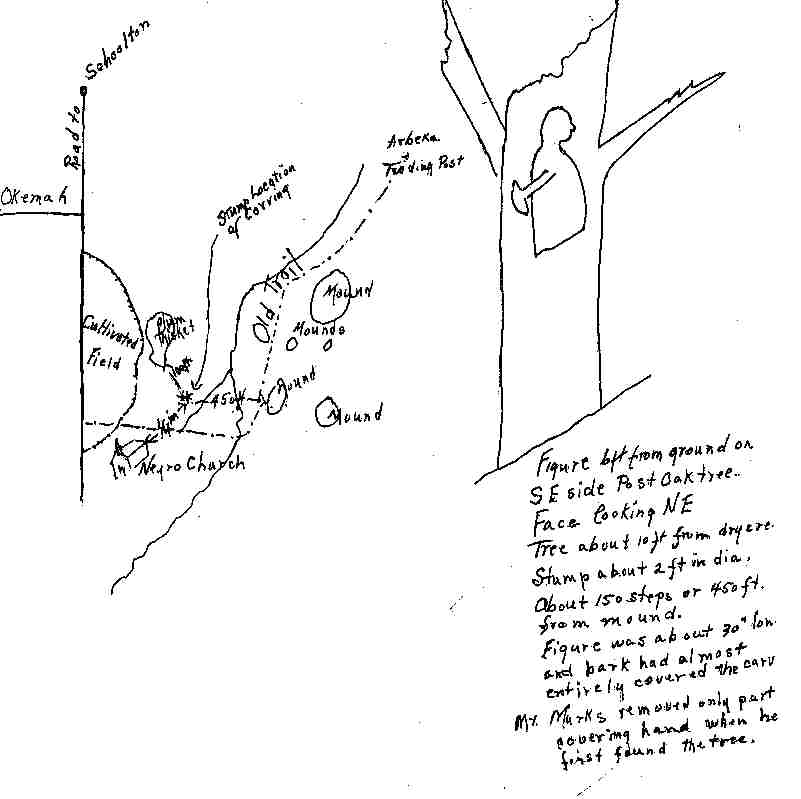 Schoolton
Road to
Okemah
Arbeka
Trading Post
Stump Location
of Carving
Old Trail
Mound
Mounds
Plum
thicket
Cultivated
Field
450ft
Mound
Mound
Negro Church
Figure 6ft from ground on
SE side Post Oak tree.
Face looking NE
Tree about 10ft from
Stump about 2 ft in dia.
About 150 steps or 450 ft.
from mound.
Figure was about 30" lon
and bark had almost
entirely covered the carv
Mr. Marks removed only part
covering hand when he
first found the tree.